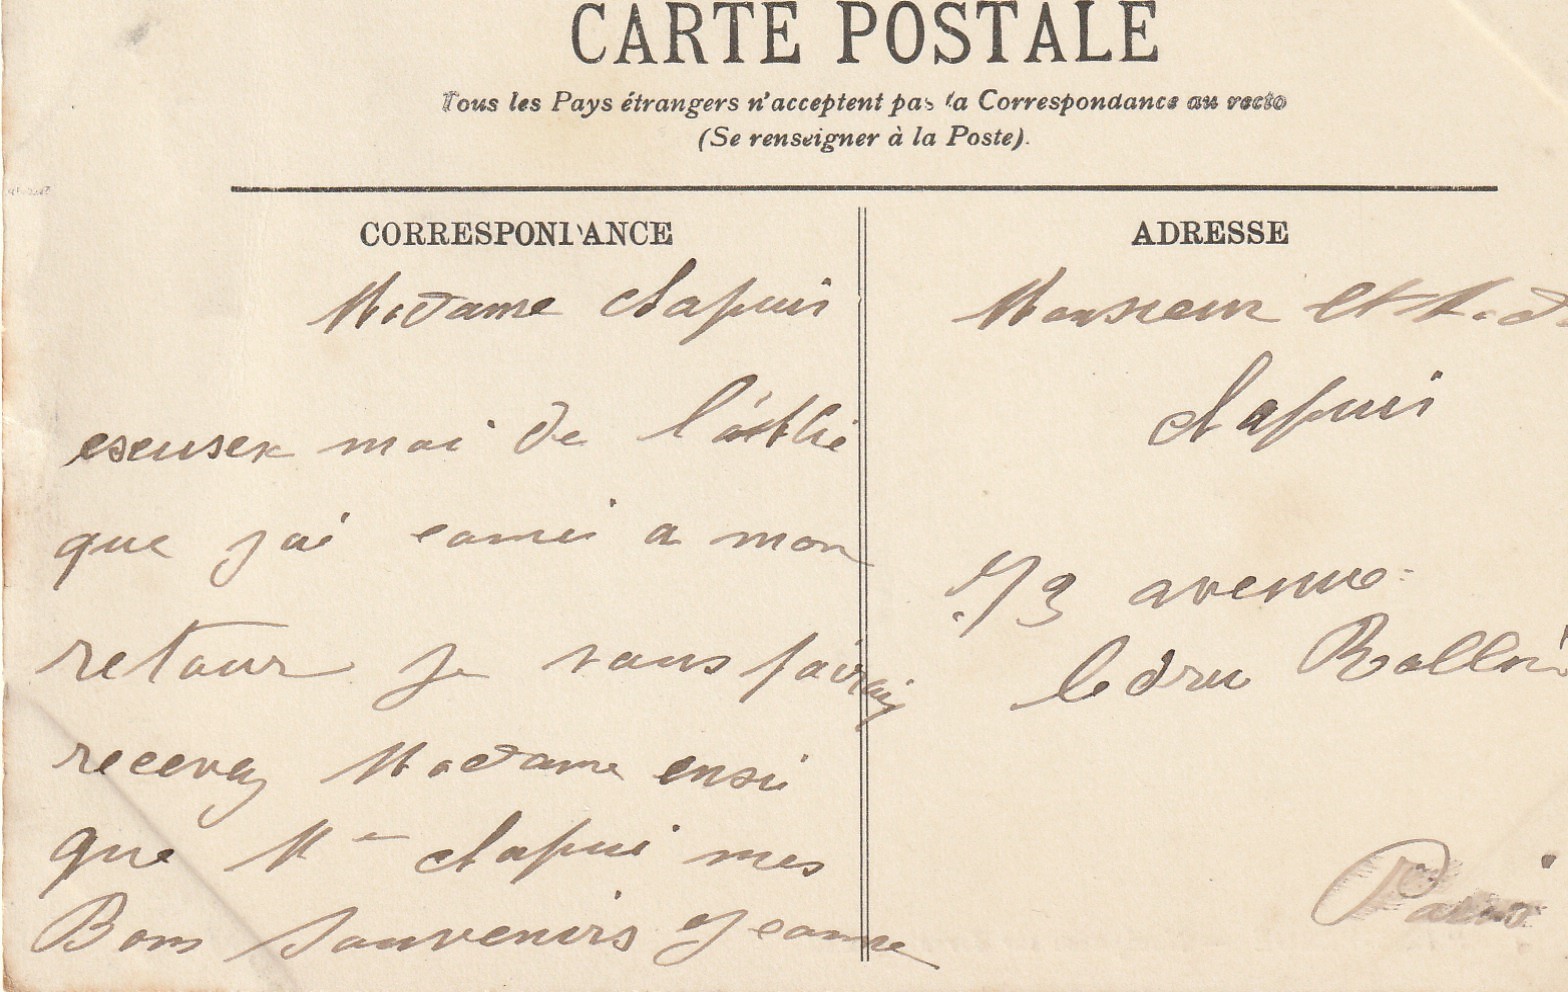 CARTE POSTALE
Tous les Pays étrangers n'acceptent pas la Correspondance au recto
(Se renseigner à la Poste).
CORRESPONDANCE
Madame Chapuis
escuser moi de l'oublie
que jai comi a mon
retour je vous
recevez Madame ensi
que Mr Chapuis mes
Bons Souvenirs Jeanne
ADRESSE
Monsieur et Mad
Chapuis
73 avenue
ledru Rollin
Paris